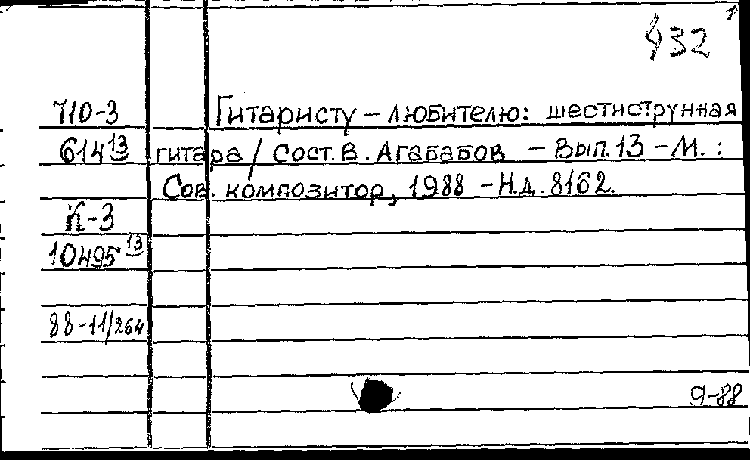 432
710-3 Гитаристу – любителю: шестиструнная
614 13 гитара / Сост. В. Агабабов – Вып. 13 – М. :
Сов. композитор, 1988 – Н.д. 8162.
К-3
10495 13
88-11/264
9-88